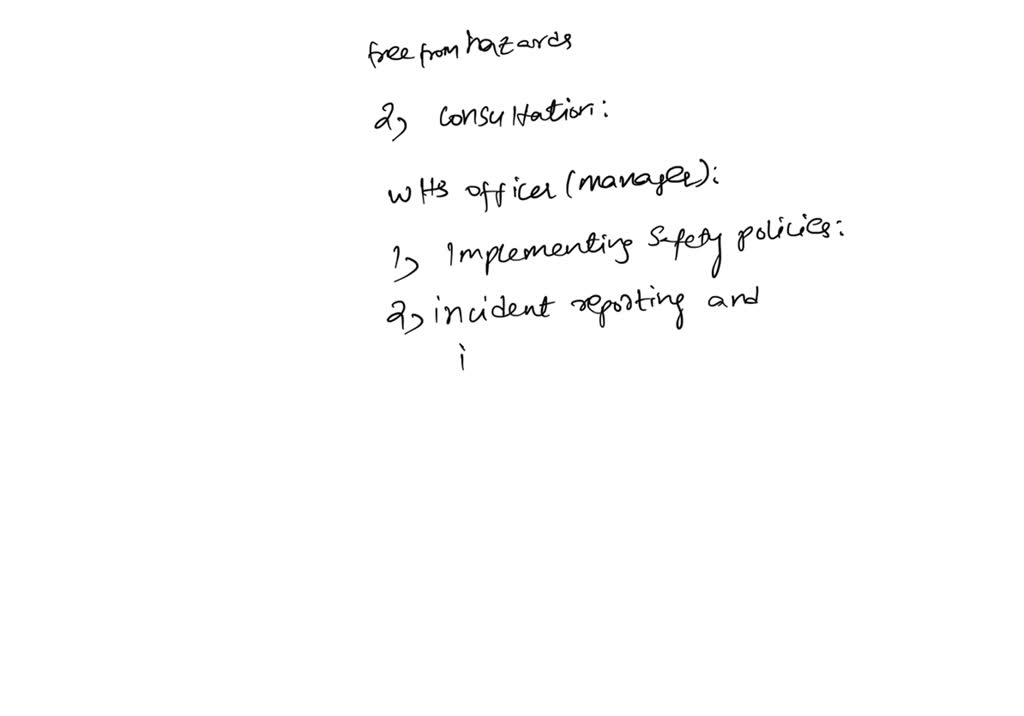 free from hazards
2, Consultation:
WHS officer (manager):
1, Implementing Safety policies:
2, incident reporting and
i